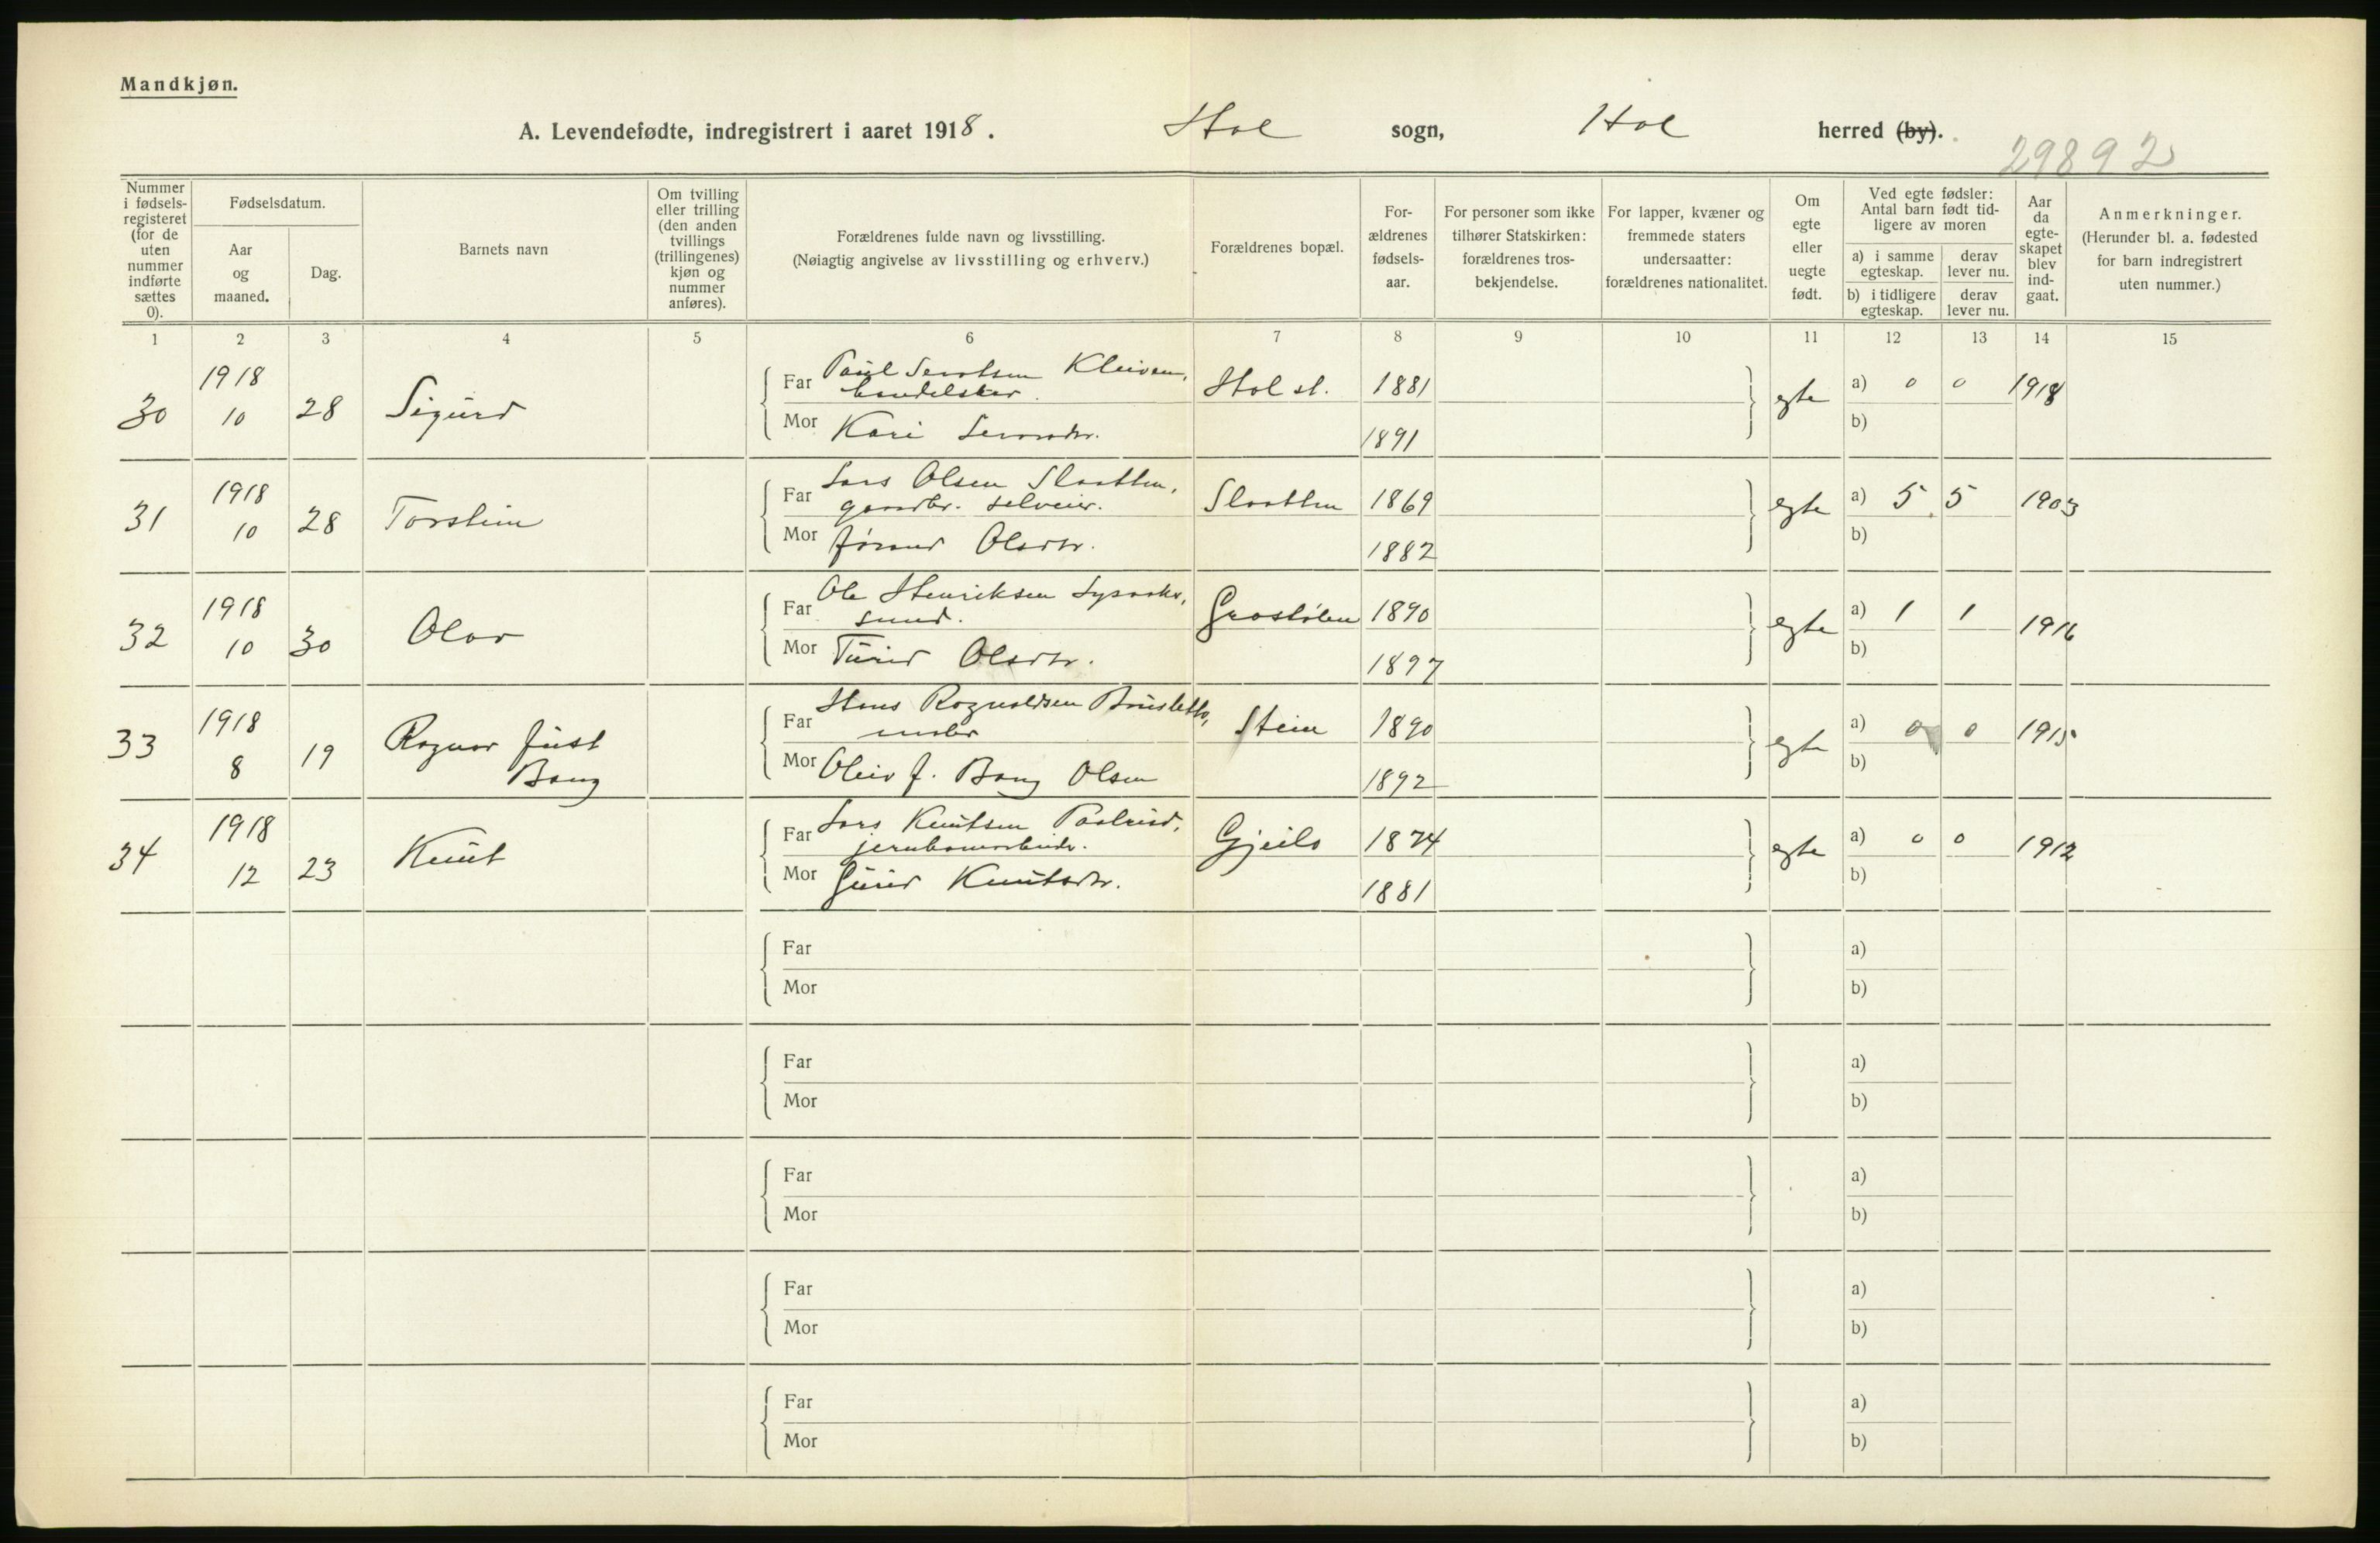 Mandkjøn.
A. Levendefødte, indregistrert i aaret 1918. Hol sogn, Hol herred (by).
29892
Nummer i fødselsregisteret (for de uten nummer indførte sættes 0).
Fødselsdatum.
Aar og maaned.
Dag.
Barnets navn
Om tvilling eller trilling (den anden tvillings (trillingenes) kjøn og nummer anføres).
Forældrenes fulde navn og livsstilling.
(Nøiagtig angivelse av livsstilling og erhverv.)
Forældrenes bopæl.
Forældrenes fødselsaar.
For personer som ikke tilhører Statskirken: forældrenes trosbekjendelse.
For lapper, kvæner og fremmede staters undersaatter: forældrenes nationalitet.
Om egte eller uegte født.
Ved egte fødsler: Antal barn født tidligere av moren
a) i samme egteskap. derav lever nu.
b) i tidligere egteskap. derav lever nu.
Aar da egteskapet blev indgaat.
Anmerkninger.
(Herunder bl. a. fødested for barn indregistrert uten nummer.)
1 2 3 4 5 6 7 8 9 10 11 12 13 14 15
30 1918 10 28 Sigurd
Far Paul Kleiven,
Hol st. 1881 egte a) 0 0 1918
Mor Kari 1891 b)
31 1918 10 28 Torstein
Far Lars Olsen Slaatten,
gaardbr. selveier. Slaatten 1869 egte a) 5 5 1903
Mor Jørand Olsdtr. 1882 b)
32 1918 10 30 Olav
Far Ole Henriksen
smed. 1890 egte a) 1 1 1916
Mor Turid Olsdtr. 1897 b)
33 1918 8 19 Ragnar Just Bang
Far Hans Ragnvaldsen Brusletto,
maler Stein 1890 egte a) 0 0 1915
Mor Oleiv J. Bang Olsen 1892 b)
34 1918 12 23 Knut
Far Lars Knutsen
jernbanearbeider. Gjeilo 1874 egte a) 0 0 1912
Mor Guri Knutsdtr. 1881 b)
Far a)
Mor b)
Far a)
Mor b)
Far a)
Mor b)
Far a)
Mor b)
Far a)
Mor b)